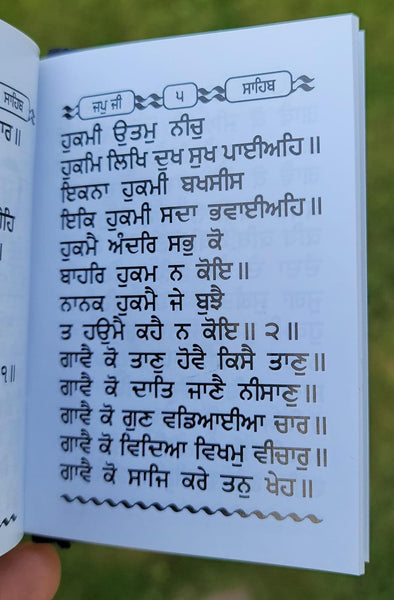 ਸਾਹਿਬ
ਜਪੁ ਜੀ ੫ ਸਾਹਿਬ
ਹੁਕਮੀ ਉਤਮੁ ਨੀਚੁ
ਹੁਕਮਿ ਲਿਖਿ ਦੁਖ ਸੁਖ ਪਾਈਅਹਿ॥
ਇਕਨਾ ਹੁਕਮੀ ਬਖਸੀਸ
ਇਕਿ ਹੁਕਮੀ ਸਦਾ ਭਵਾਈਅਹਿ॥
ਹੁਕਮੈ ਅੰਦਰਿ ਸਭੁ ਕੋ
ਬਾਹਰਿ ਹੁਕਮ ਨ ਕੋਇ॥
ਨਾਨਕ ਹੁਕਮੈ ਜੇ ਬੁਝੈ
ਤ ਹਉਮੈ ਕਹੈ ਨ ਕੋਇ॥੨॥
ਗਾਵੈ ਕੋ ਤਾਣੁ ਹੋਵੈ ਕਿਸੈ ਤਾਣੁ॥
ਗਾਵੈ ਕੋ ਦਾਤਿ ਜਾਣੈ ਨੀਸਾਣੁ॥
ਗਾਵੈ ਕੋ ਗੁਣ ਵਡਿਆਈਆ ਚਾਰ॥
ਗਾਵੈ ਕੋ ਵਿਦਿਆ ਵਿਖਮੁ ਵੀਚਾਰੁ॥
ਗਾਵੈ ਕੋ ਸਾਜਿ ਕਰੇ ਤਨੁ ਖੇਹ॥